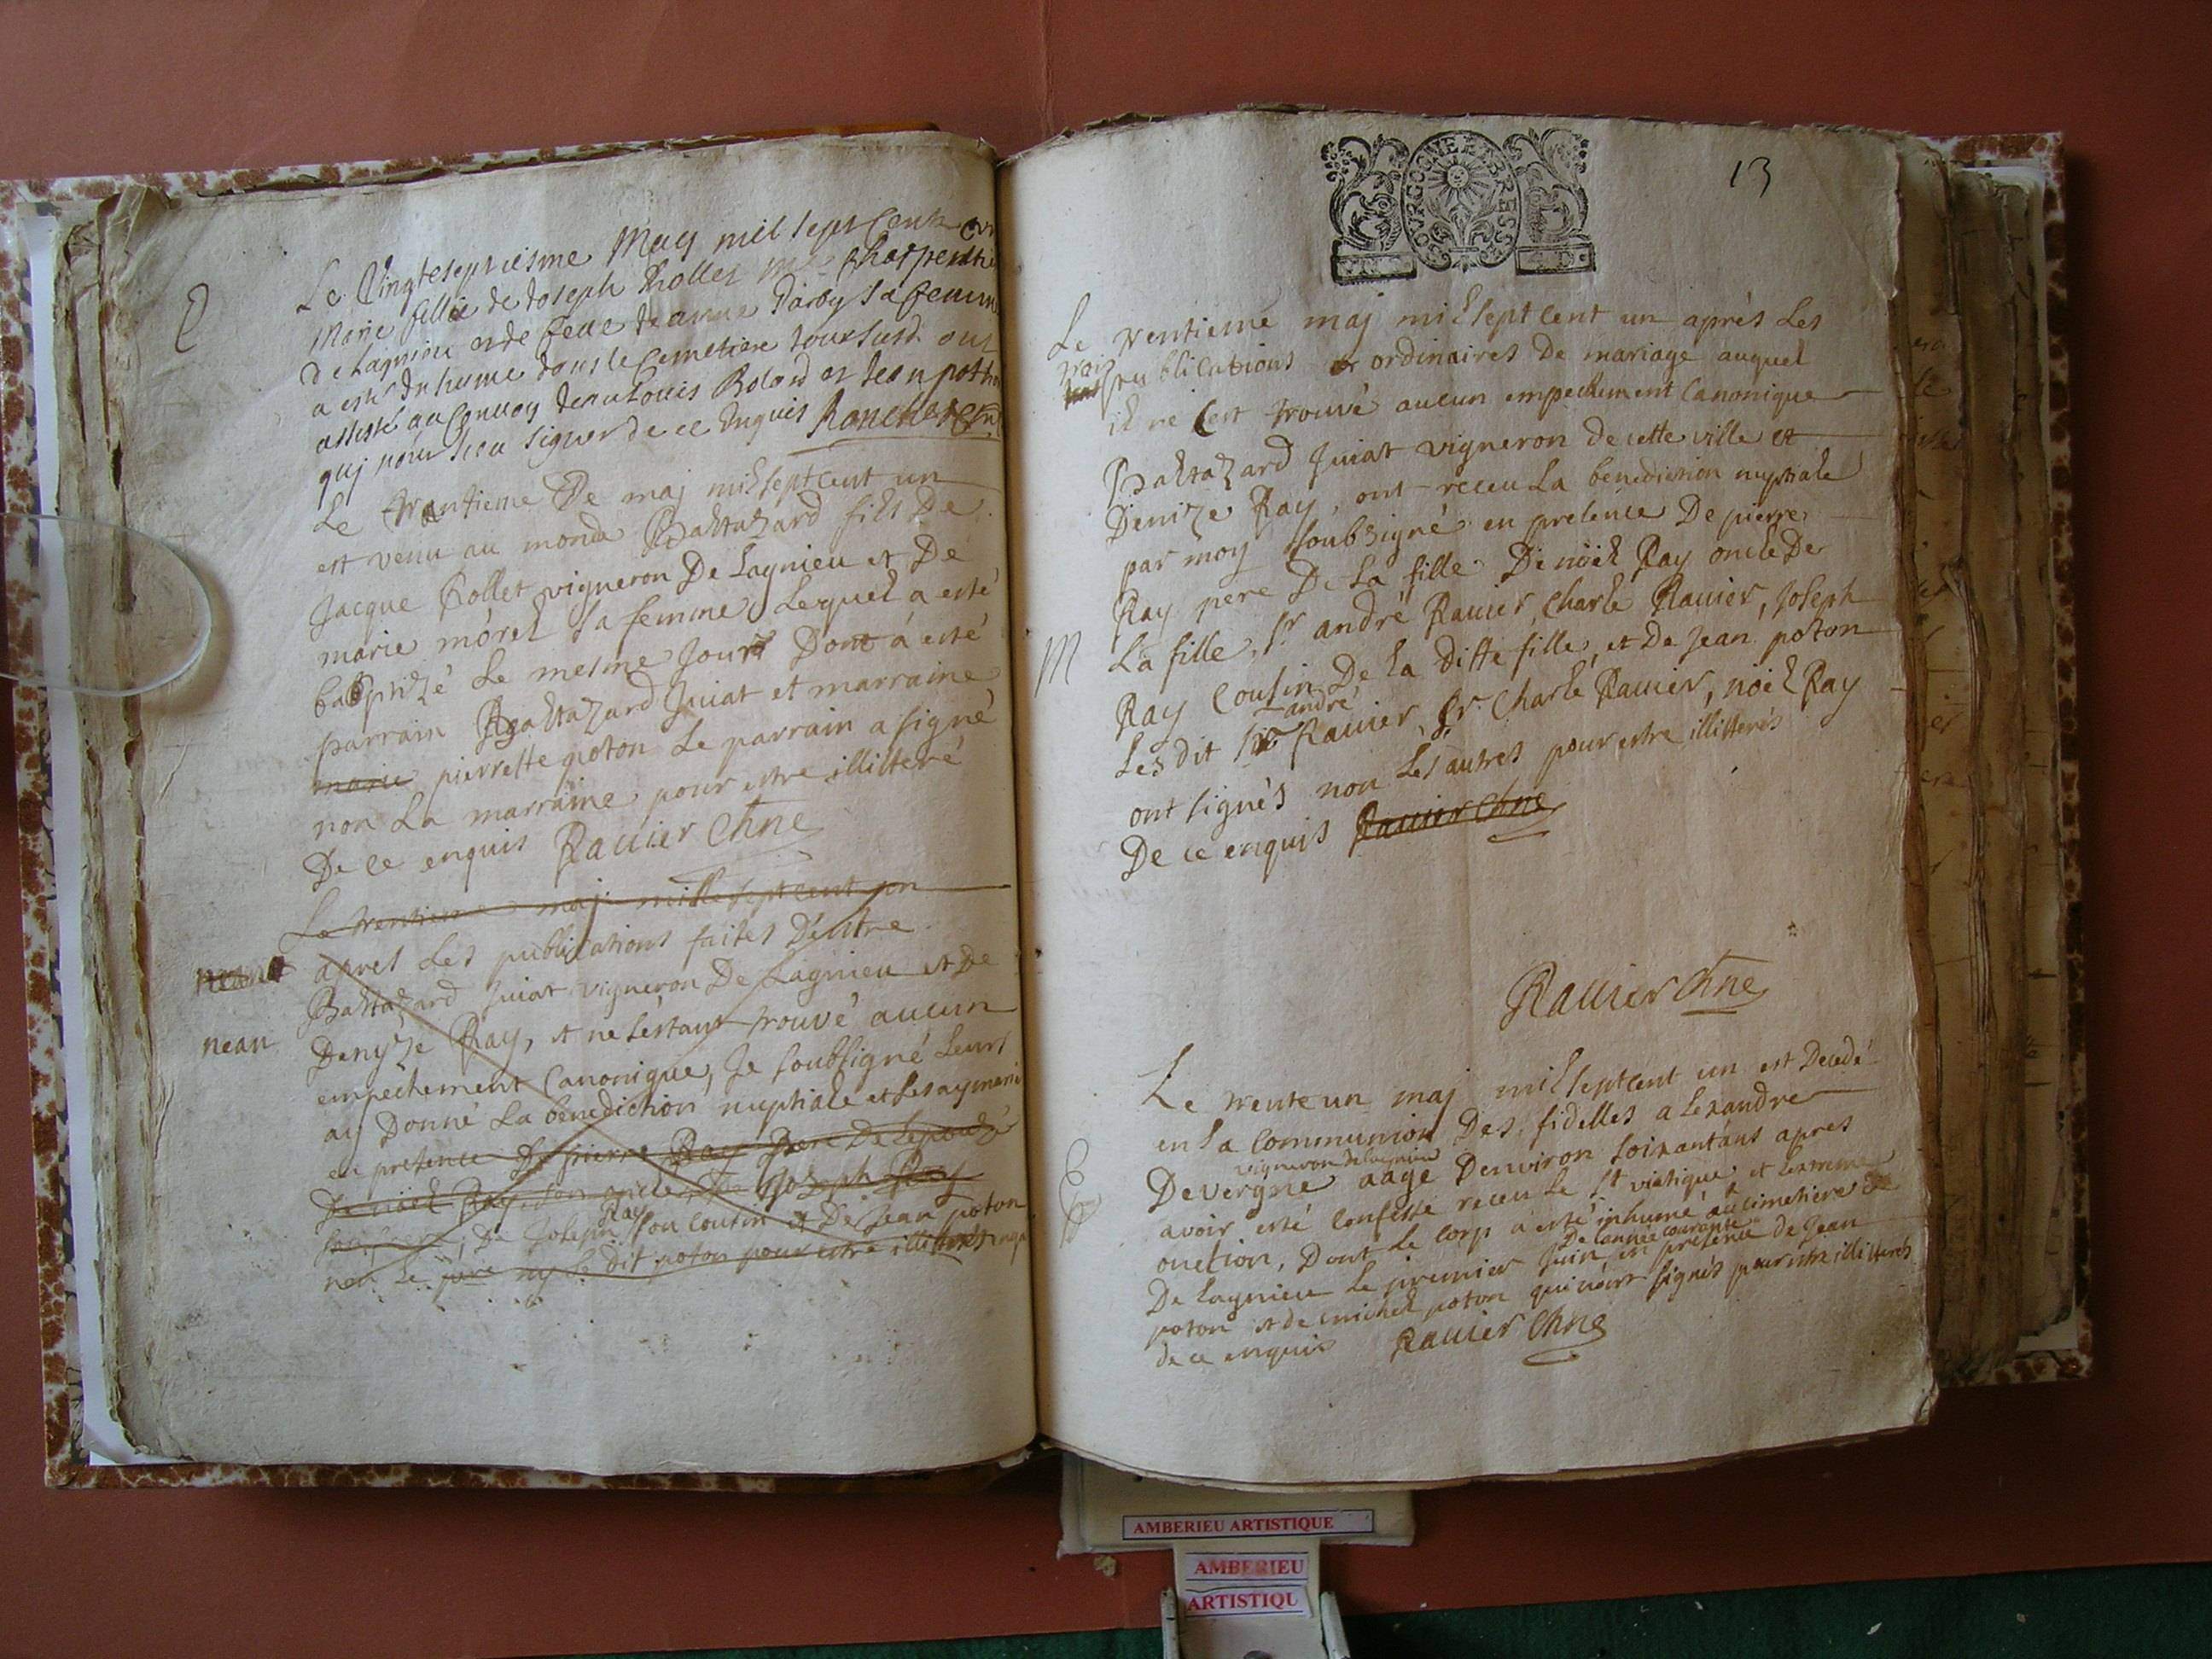 Le Vingtseptiesme May mil sept Cent
Marie fillie de Joseph Rollet me Charpentie
de Lagnieu et de feue Jeanne Darby sa femme
a esté Inhumé dans le Cemetiere tous susd. ont
assisté au Convoy Louis Bolard et Jean potton
quj n'ont sceu signer de ce Enquis
Le trantieme De maj mil sept cent un
est venu au monde Baltazard fils De
Jacque Rollet vigneron De Lagnieu et De
marie morel sa femme Lequel a esté
baptizé Le mesme Jour Dont á esté
parrain Baltazard Juiat et marraine
marie pierrette poton Le parrain a signé
non La marraine pour estre illitteré
De ce enquis Rauier Chne
Le trentieme maj mille sept cent un
neant
apres Les publications faites D'entre
Baltazard Juiat vigneron De Lagnieu et De
nean
Denyze Ray, et ne s'estant trouvé aucun
empechement Canonique, Je soubsigné Leurs
ay Donné La benediction nuptiale et Les ay marié
en presence De pierre Ray Pere De L'epouze
De noël Ray, son oncle, De Joseph Ray
De Joseph Ray son cousin et De Jean poton
non Le pere ny Le dit poton pour estre illitterés
13
BOURGOGNE BRESSE
Le trentieme maj mil sept cent un aprés Les
trois publications ordinaires De mariage auquel
il ne s'est trouvé aucun empechement Canonique
Baltazard Juiat vigneron de cette ville et
Denize Ray, ont receu La benediction nuptiale
par moy soubsigné en presence De pierre
Ray pere De La fille De noël Ray oncle De
M
La fille, sr andré Rauier, Charle Rauier, Joseph
Ray Cousin De La ditte fille, et De Jean poton
Les dit sr andré Rauier, sr. Charle Rauier, noël Ray
ont signés non Les autres pour estre illitterés
De ce enquis Rauier Chne
Rauier Chne
Le trente un maj mil sept cent un est Decedé
en La Communion Des fidelles alexandre
Devergne vigneron de lagnieu aagé D'environ soixant'ans apres
avoir esté confessé receu Le St viatique et L'extreme
onction, Dont Le corp a esté inhumé au cimetiere de
De Lagnieu Le premier Juin De l'année courante en presence de Jean
poton et de michel poton qui n'ont signés pour estre illitterés
de ce enquis Rauier Chne
AMBERIEU ARTISTIQUE
AMBERIEU
ARTISTIQU